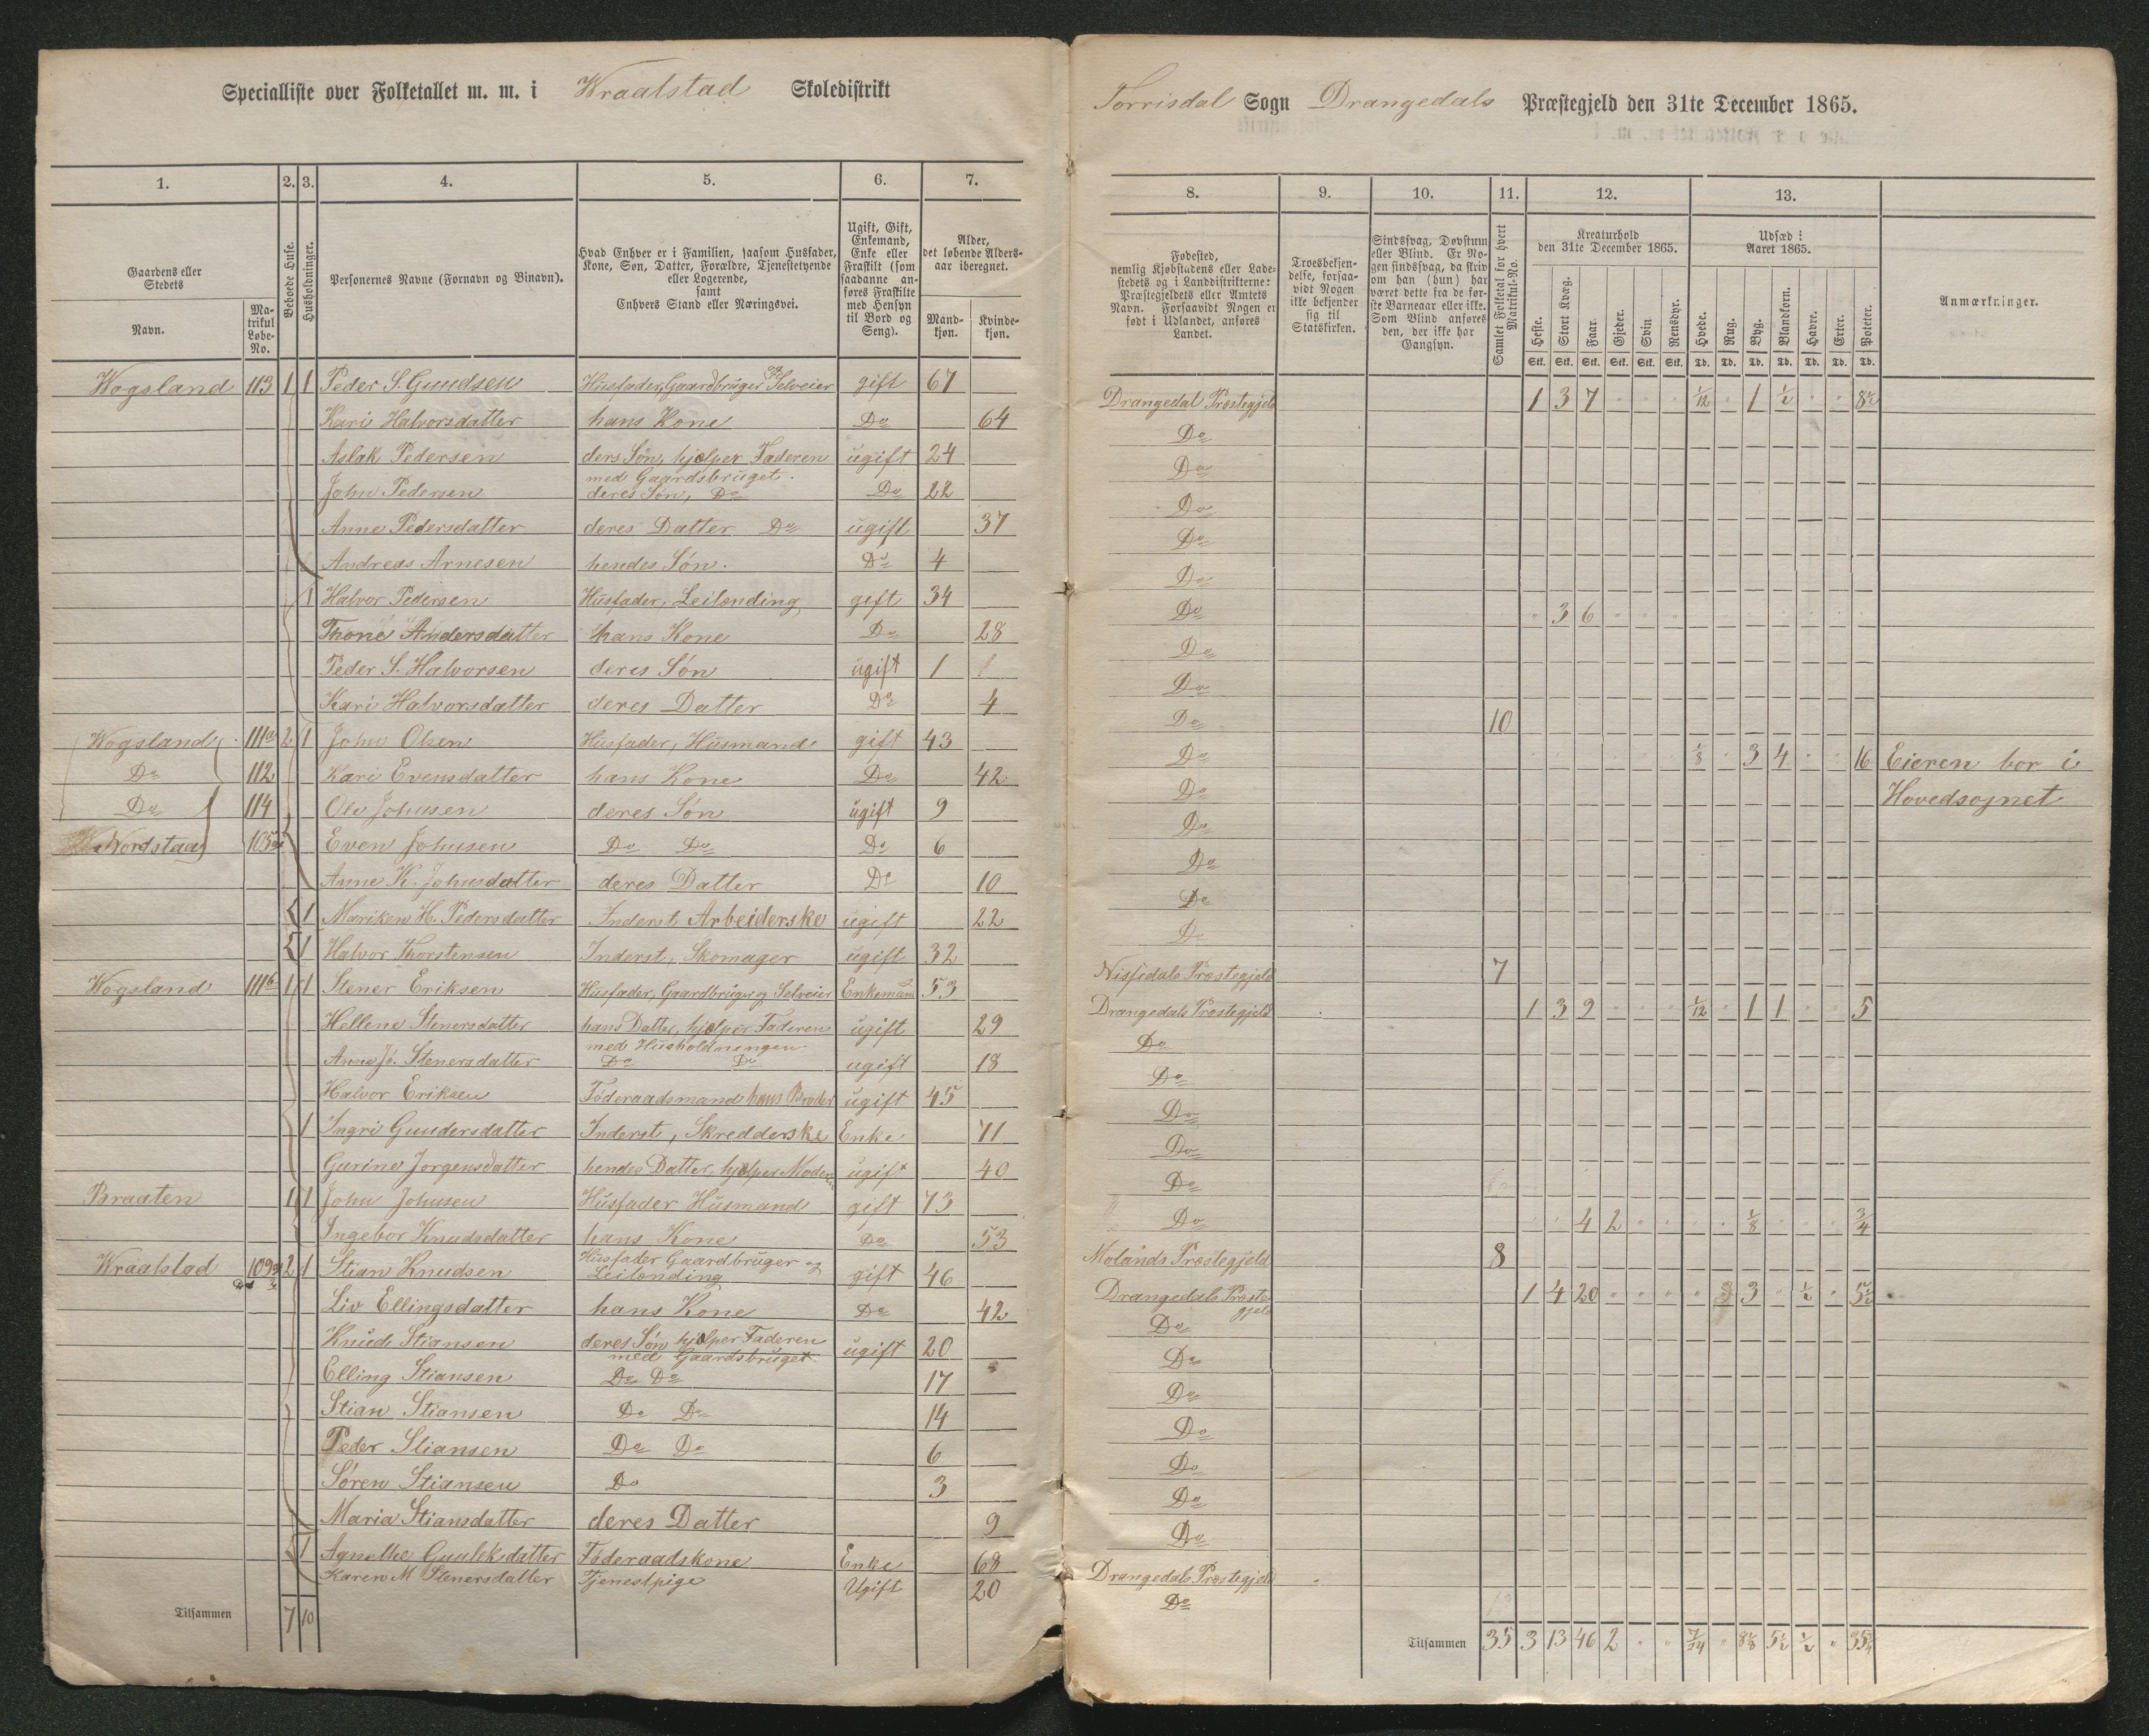 Specialliste over Folketallet m. m. i Kraalstad Skoledistrikt
Torrisdal Sogn Drangedals Præstegjeld den 31te December 1865.
1. 2. 3. 4. 5. 6. 7.
Gaardens eller Stedets Navn.
Matrikul Løbe-No.
Beboede Huse.
Husholdninger.
Personernes Navne (Fornavn og Binavn).
Hvad Enhver er i Familien, saasom Husfader, Kone, Søn, Datter, Forældre, Tjenestetyende eller Logerende, samt Enhvers Stand eller Næringsvei.
Ugift, Gift, Enkemand, Enke eller Fraskilt (som saadanne anføres Fraskilte med Hensyn til Bord og Seng).
Alder, det løbende Aldersaar iberegnet.
Mandkjøn. Kvindekjøn.
8. 9. 10. 11. 12. 13.
Fødested, nemlig Kjøbstadens eller Ladestedets og i Landdistrikterne: Præstegjeldets eller Amtets Navn. Forsaavidt Nogen er født i Udlandet, anføres Landet.
Troesbekjendelse, forsaavidt Nogen ikke bekjender sig til Statskirken.
Sindssvag, Døvstum eller Blind. Er Nogen sindssvag, da skriv om han (hun) har været dette fra de første Barneaar eller ikke. Som Blind anføres den, der ikke har Gangsyn.
Samlet Folketal for hvert Matrikul-No.
Kreaturhold den 31te December 1865.
Heste. Stort Kvæg. Faar. Gjeder. Svin. Rensdyr.
Udsæd i Aaret 1865.
Hvede. Rug. Byg. Blandkorn. Havre. Erter. Poteter.
Anmærkninger.
Stk. Stk. Stk. Stk. Stk. Stk. Td. Td. Td. Td. Td. Td. Td.
Wogsland 113 1 1 Peder S. Gundsen Husfader, Gaardbruger og Selveier gift 67 Drangedal Præstegjeld 1 3 7 1/12 1 1/2 8 1/2
Kari Halvorsdatter hans Kone Do 64 Do
Aslak Pedersen ders Søn, hjælper Faderen med Gaardsbruget. ugift 24 Do
John Pedersen deres Søn, Do Do 22 Do
Anne Pedersdatter deres Datter Do ugift 37 Do
Andreas Arnesen hendes Søn. Do 4 Do
1 Halvor Pedersen Husfader, Leilending gift 34 Do 3 6
Thone Andersdatter hans Kone Do 28 Do
Peder S. Halvorsen deres Søn ugift 1 Do
Kari Halvorsdatter deres Datter Do 4 Do 10
Wogsland 111a 2 1 John Olsen Husfader, Husmand gift 43 Do 1/8 3 4 16 Eieren bor i
Do 112 Kari Evensdatter hans Kone Do 42 Do Hovedsognet
Do 114 Ole Johnsen deres Søn ugift 9 Do
Nordstaa 105 Even Johnsen Do Do Do 6 Do
Anne K. Johnsdatter deres Datter Do 10 Do
1 Mariken H. Pedersdatter Inderst Arbeiderske ugift 22 Do
1 Halvor Thorstensen Inderst, Skomager ugift 32 Nissedals Præstegjeld 7
Wogsland 111b 1 1 Stener Eriksen Husfader, Gaardbruger og Selveier Enkemand 53 Drangedals Præstegjeld 1 3 9 1/12 1 1 5
Hellene Stenersdatter hans Datter, hjælper Faderen med Husholdningen ugift 29 Do
Anne Jo. Stenersdatter Do Do ugift 18 Do
Halvor Eriksen Føderaadsmand hans Broder ugift 45 Do
1 Ingri Gundersdatter Inderst, Skredderske Enke 71 Do
Gurine Jorgensdatter hendes Datter, hjælper Moderen ugift 40 Do
Braaten 1 1 John Johnsen Husfader Husmand gift 73 Do 4 2 1/8 3/4
Ingebor Knudsdatter hans Kone Do 53 Molands Præstegjeld 8
Kraalstad 109 2 1 Stian Knudsen Husfader Gaardbruger og Leilending gift 46 Drangedals Præstegjeld 1 4 20 3 1/2 5 1/2
Liv Ellingsdatter hans Kone Do 42 Do
Knud Stiansen deres Søn hjælper Faderen med Gaardsbruget ugift 20 Do
Elling Stiansen Do Do 17 Do
Stian Stiansen Do Do 14 Do
Peder Stiansen Do Do 6 Do
Søren Stiansen Do 3 Do
Maria Stiansdatter deres Datter 9 Do
1 Agnethe Gunleksdatter Føderaadskone Enke 68 Drangedals Præstegjeld
Karen M Stenersdatter Tjenestpige Ugift 20 Do
Tilsammen 7 10
Tilsammen 35 3 13 46 2 7/24 8 1/8 5 1/2 1/2 35 3/4